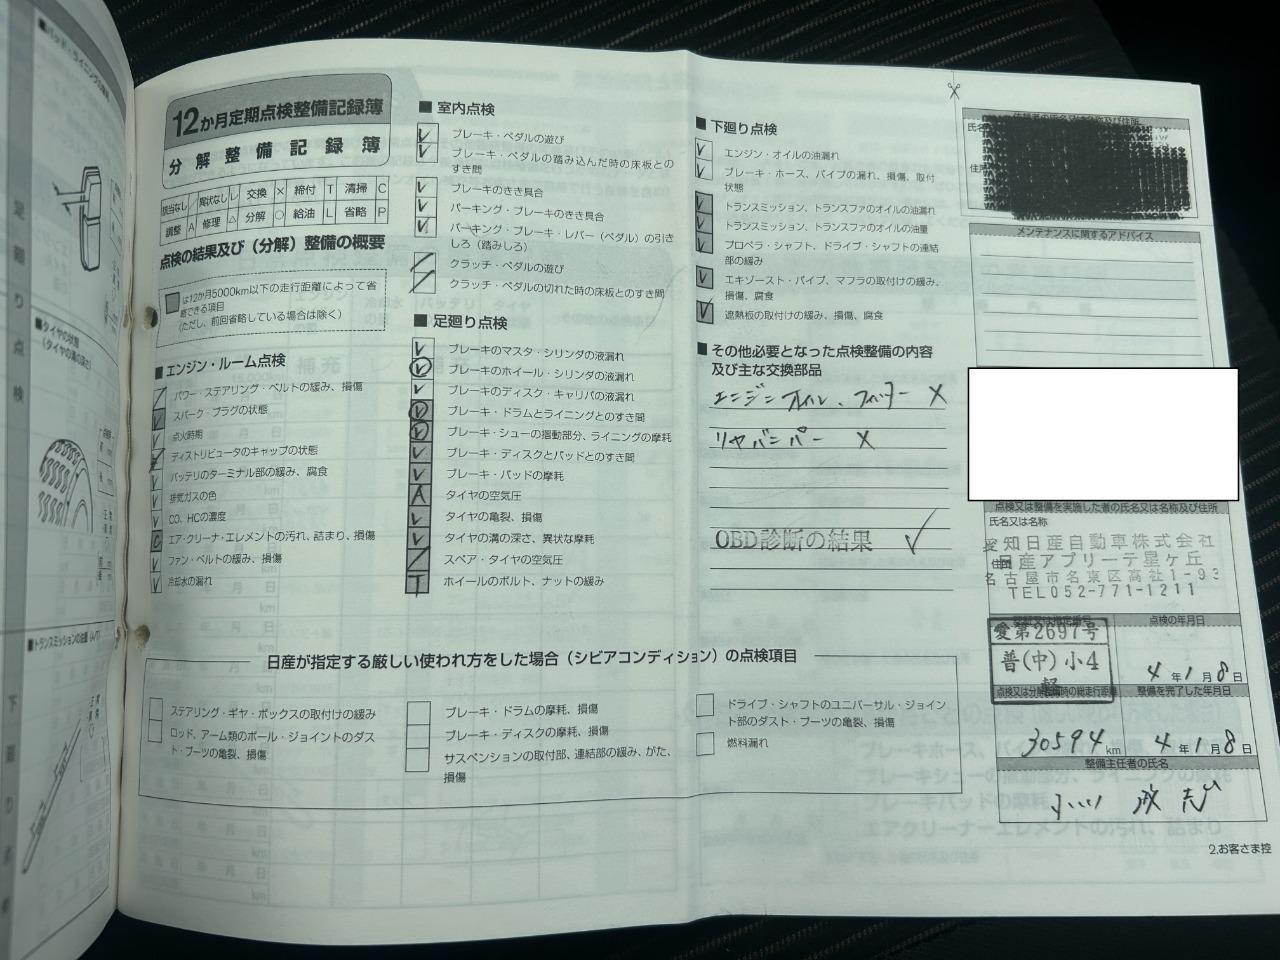 パッド・ライニングの摩耗
足廻り点検
■タイヤの状態
(タイヤの溝の深さ)
■トランスミッションの油量 (A/T)
下廻り点検
12か月定期点検整備記録簿
分解整備記録簿
該当なし / 異状なし レ 交換 × 締付 T 清掃 C
調整 A 修理 △ 分解 ○ 給油 L 省略 P
点検の結果及び(分解)整備の概要
は12か月5000km以下の走行距離によって省
略できる項目
(ただし、前回省略している場合は除く)
■ エンジン・ルーム点検
/ パワー・ステアリング・ベルトの緩み、損傷
レ スパーク・プラグの状態
レ 点火時期
ディストリビュータのキャップの状態
レ バッテリのターミナル部の緩み、腐食
レ 排気ガスの色
レ CO、HCの濃度
C エア・クリーナ・エレメントの汚れ、詰まり、損傷
レ ファン・ベルトの緩み、損傷
レ 冷却水の漏れ
■ 室内点検
レ ブレーキ・ペダルの遊び
レ ブレーキ・ペダルの踏み込んだ時の床板との
すき間
レ ブレーキのきき具合
レ パーキング・ブレーキのきき具合
レ パーキング・ブレーキ・レバー(ペダル)の引き
しろ(踏みしろ)
/ クラッチ・ペダルの遊び
/ クラッチ・ペダルの切れた時の床板とのすき間
■ 足廻り点検
レ ブレーキのマスタ・シリンダの液漏れ
レ ブレーキのホイール・シリンダの液漏れ
レ ブレーキのディスク・キャリパの液漏れ
レ ブレーキ・ドラムとライニングとのすき間
レ ブレーキ・シューの摺動部分、ライニングの摩耗
レ ブレーキ・ディスクとパッドとのすき間
レ ブレーキ・パッドの摩耗
A タイヤの空気圧
レ タイヤの亀裂、損傷
レ タイヤの溝の深さ、異状な摩耗
/ スペア・タイヤの空気圧
T ホイールのボルト、ナットの緩み
■ 下廻り点検
レ エンジン・オイルの油漏れ
レ ブレーキ・ホース、パイプの漏れ、損傷、取付
状態
レ トランスミッション、トランスファのオイルの油漏れ
レ トランスミッション、トランスファのオイルの油量
レ プロペラ・シャフト、ドライブ・シャフトの連結
部の緩み
レ エキゾースト・パイプ、マフラの取付けの緩み、
損傷、腐食
レ 遮熱板の取付けの緩み、損傷、腐食
■ その他必要となった点検整備の内容
及び主な交換部品
エンジンオイル、フィルター ×
リヤバンパー ×
OBD診断の結果 ✓
日産が指定する厳しい使われ方をした場合(シビアコンディション)の点検項目
ステアリング・ギヤ・ボックスの取付けの緩み
ロッド、アーム類のボール・ジョイントのダス
ト・ブーツの亀裂、損傷
ブレーキ・ドラムの摩耗、損傷
ブレーキ・ディスクの摩耗、損傷
サスペンションの取付部、連結部の緩み、がた、
損傷
ドライブ・シャフトのユニバーサル・ジョイン
ト部のダスト・ブーツの亀裂、損傷
燃料漏れ
メンテナンスに関するアドバイス
点検又は整備を実施した者の氏名又は名称及び住所
氏名又は名称
愛知日産自動車株式会社
住所
日産アプリーテ星ヶ丘
名古屋市名東区高社1-93
TEL052-771-1211
愛第2697号
普(中)小4
軽
点検の年月日
4年1月8日
点検又は分解整備時の総走行距離
整備を完了した年月日
30594 km
4年1月8日
整備主任者の氏名
2.お客さま控